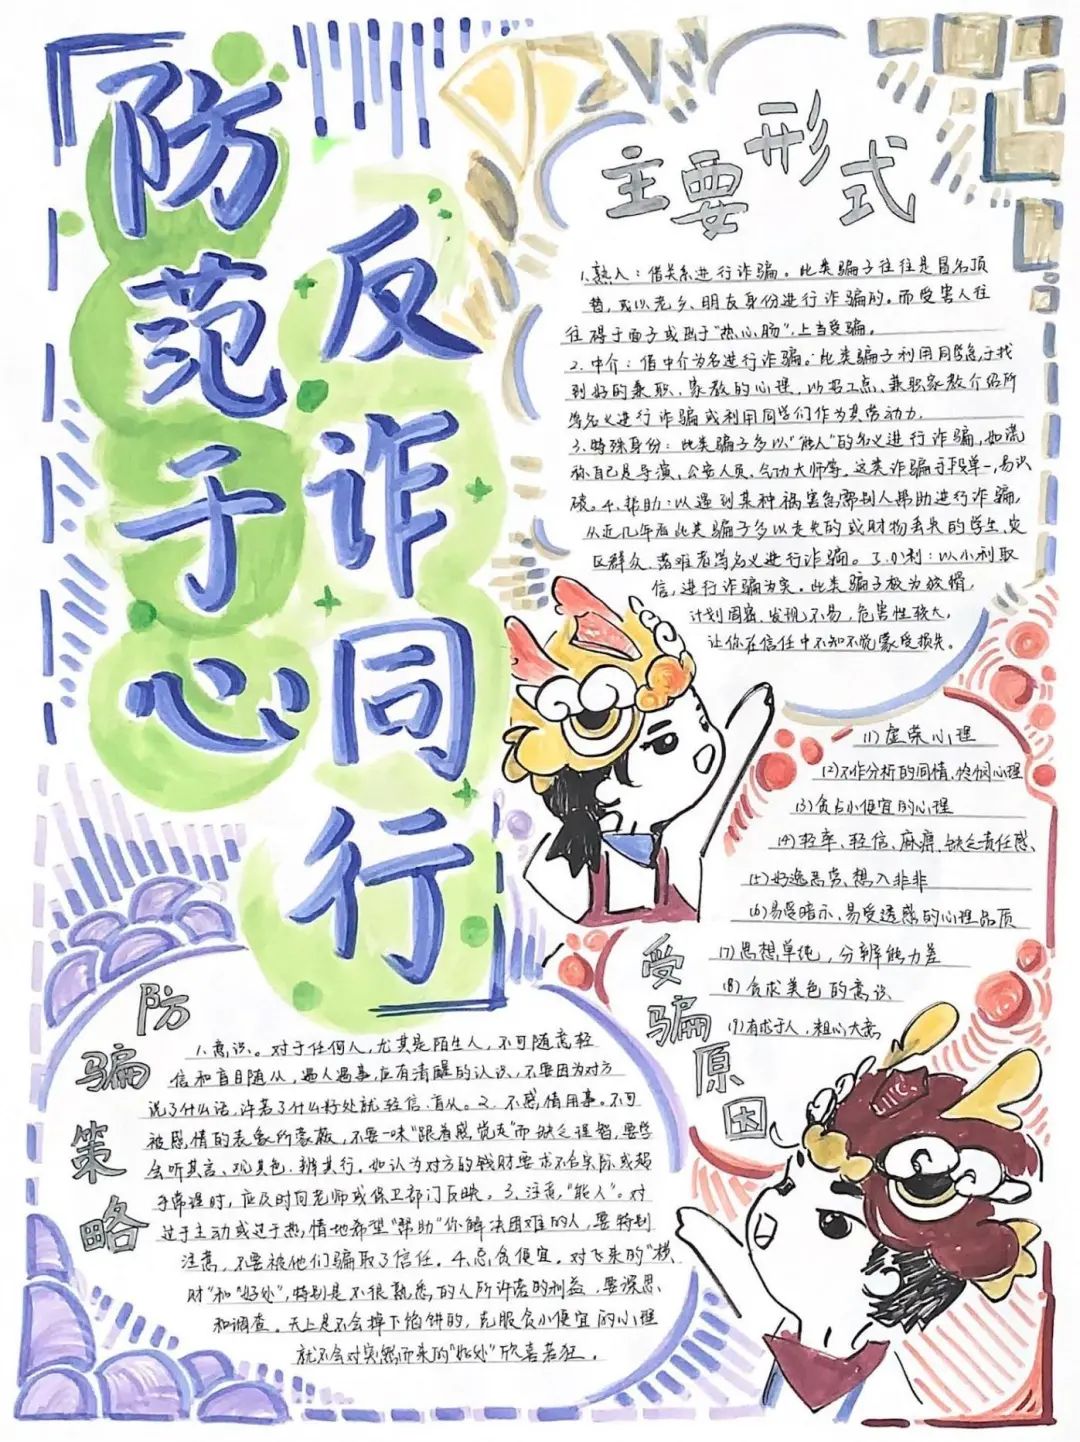 防范于心
反诈同行
主要形式
1.熟人：借关系进行诈骗。此类骗子往往是冒名顶
替,或以老乡、朋友身份进行诈骗的。而受害人往
往碍于面子或出于"热心肠",上当受骗。
2.中介：借中介为名进行诈骗。此类骗子利用同学急于找
到好的兼职、家教的心理,以招工点、兼职家教介绍所
等名义进行诈骗或利用同学们作为其劳动力.
3.特殊身份：此类骗子多以"能人"的名义进行诈骗,如谎
称自己是导演、公安人员、气功大师等。这类诈骗手段单一,易识
破。4.帮助：以遇到某种祸害急需别人帮助进行诈骗,
从近几年看此类骗子多以走失的或财物丢失的学生、灾
区群众、落难者等名义进行诈骗。5.小利：以小利取
信,进行诈骗为实。此类骗子极为狡猾,
计划周密、发现不易,危害性较大,
让你在信任中不知不觉蒙受损失。
受骗原因
(1)虚荣心理
(2)不作分析的同情、怜悯心理
(3)贪占小便宜的心理
(4)轻率、轻信、麻痹、缺乏责任感、
(5)好逸恶劳、想入非非
(6)易受暗示、易受诱惑的心理品质
(7)思想单纯，分辨能力差
(8)贪求美色的意识
(9)有求于人，粗心大意
防骗策略
1.意识。对于任何人,尤其是陌生人，不可随意轻
信和盲目随从，遇人遇事,应有清醒的认识，不要因为对方
说了什么话,许诺了什么好处就轻信、盲从。2.不感情用事。不可
被感情的表象所蒙蔽，不要一味"跟着感觉走"而缺乏理智,要学
会听其言、观其色、辨其行。如认为对方的钱财要求不合实际或超
乎常理时，应及时向老师或保卫部门反映。3.注意"能人"。对
过于主动或过于热情地希望"帮助"你解决困难的人，要特别
注意，不要被他们骗取了信任。4.忌贪便宜。对飞来的"横
财"和"好处",特别是不很熟悉的人所许诺的利益，要深思
和调查。天上是不会掉下馅饼的，克服贪小便宜的心理
就不会对突然而来的"好处"欣喜若狂。